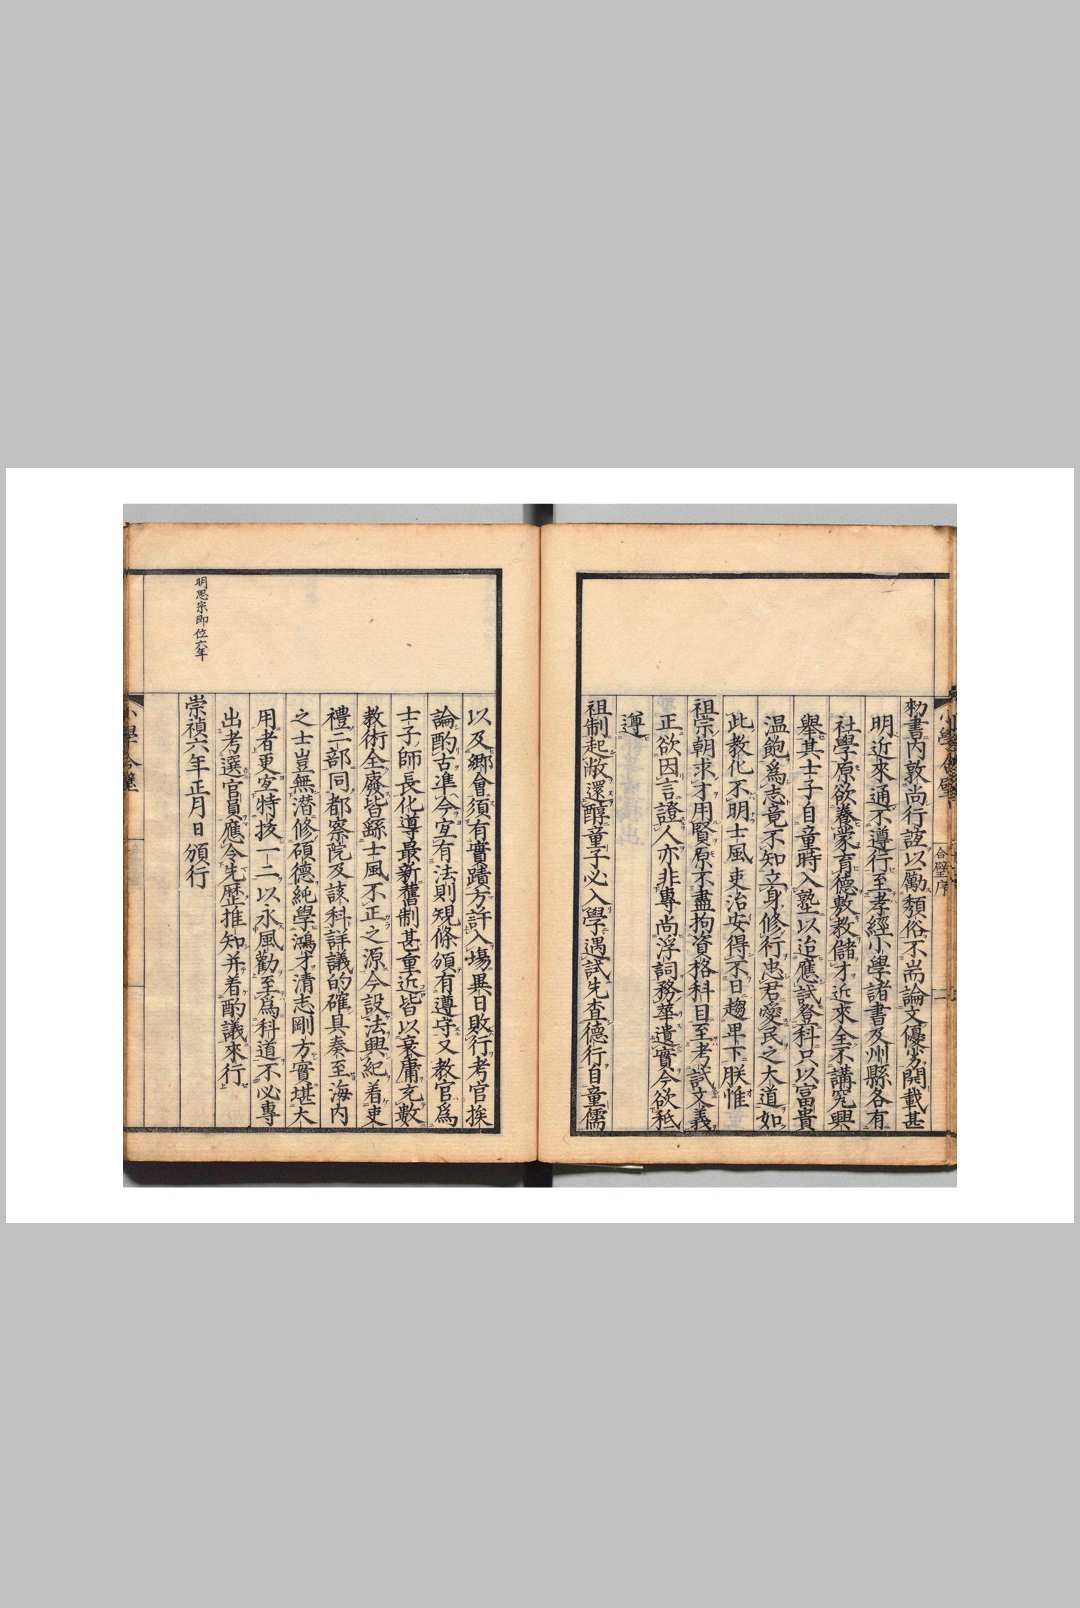 勅書内敦尚行誼以勵頽俗不尚論文優劣開載甚
明近來通不遵行至孝經小學諸書及州縣各有
社學原欲養蒙育德敷教儲才近來全不講究興
舉其士子自童時入塾以迨應試登科只以富貴
温飽爲志竟不知立身修行忠君愛民之大道如
此教化不明士風吏治安得不日趨卑下朕惟
祖宗朝求才用賢原不盡拘資格科目至考試文義
正欲因言證人亦非專尚浮詞務華遺實今欲秪
遵
祖制起敝還醇童子必入學遇試先查德行自童儒
以及鄉會須有實蹟方許入塲異日敗行考官挨
論酌古準今定有法則規條頒有遵守又教官爲
士子師長化導最新舊制甚重近皆以衰庸充數
教術全廢皆繇士風不正之源今設法興紀着吏
禮二部同都察院及該科詳議的確具奏至海内
之士豈無潜修碩德純學鴻才清志剛方實堪大
用者更宜特拔一二以永風勸至爲科道不必專
出考選官員應令先歴推知并着酌議來行
崇禎六年正月日頒行
明思宗即位六年
小學合璧
合璧序
一
小學合璧